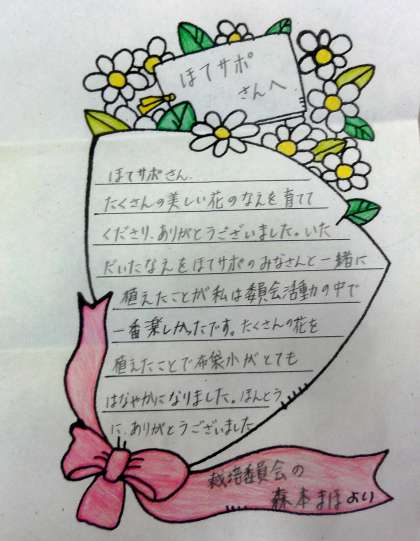 ほてサポ
さんへ
ほてサポさん、
たくさんの美しい花のなえを育てて
くださり、ありがとうございました。いた
だいたなえをほてサポのみなさんと一緒に
植えたことが私は委員会活動の中で
一番楽しかったです。たくさんの花を
植えたことで布袋小がとても
はなやかになりました。ほんとう
に、ありがとうございました
栽培委員会の
森本まほより